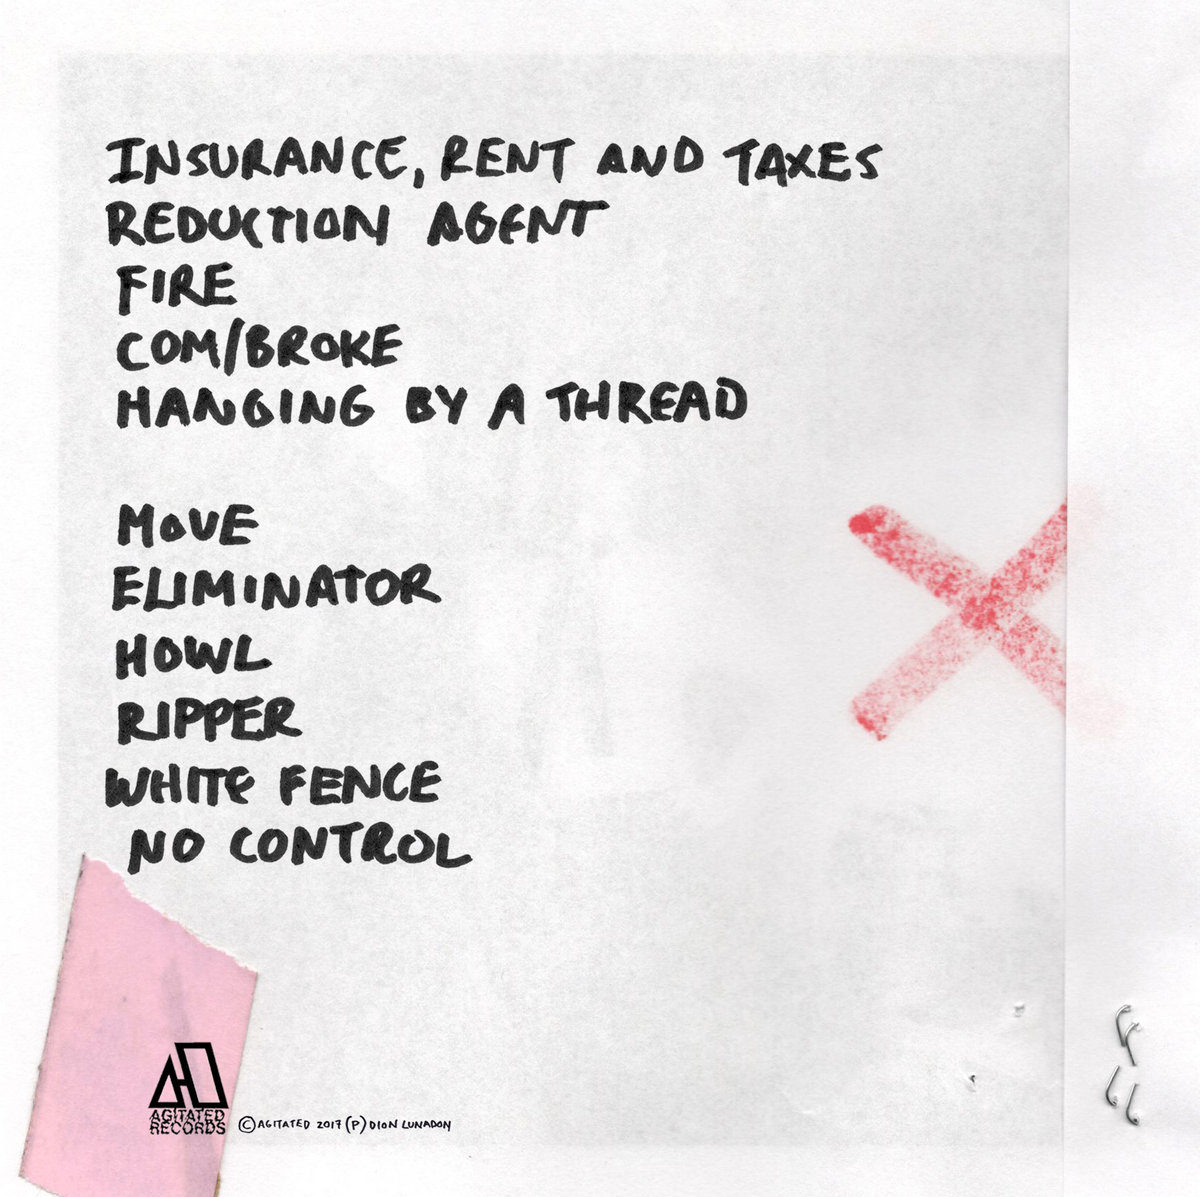 INSURANCE, RENT AND TAXES
REDUCTION AGENT
FIRE
COM/BROKE
HANGING BY A THREAD
MOVE
ELIMINATOR
HOWL
RIPPER
WHITE FENCE
NO CONTROL
AGITATED
RECORDS
©AGITATED 2017 (P) DION LUNADON